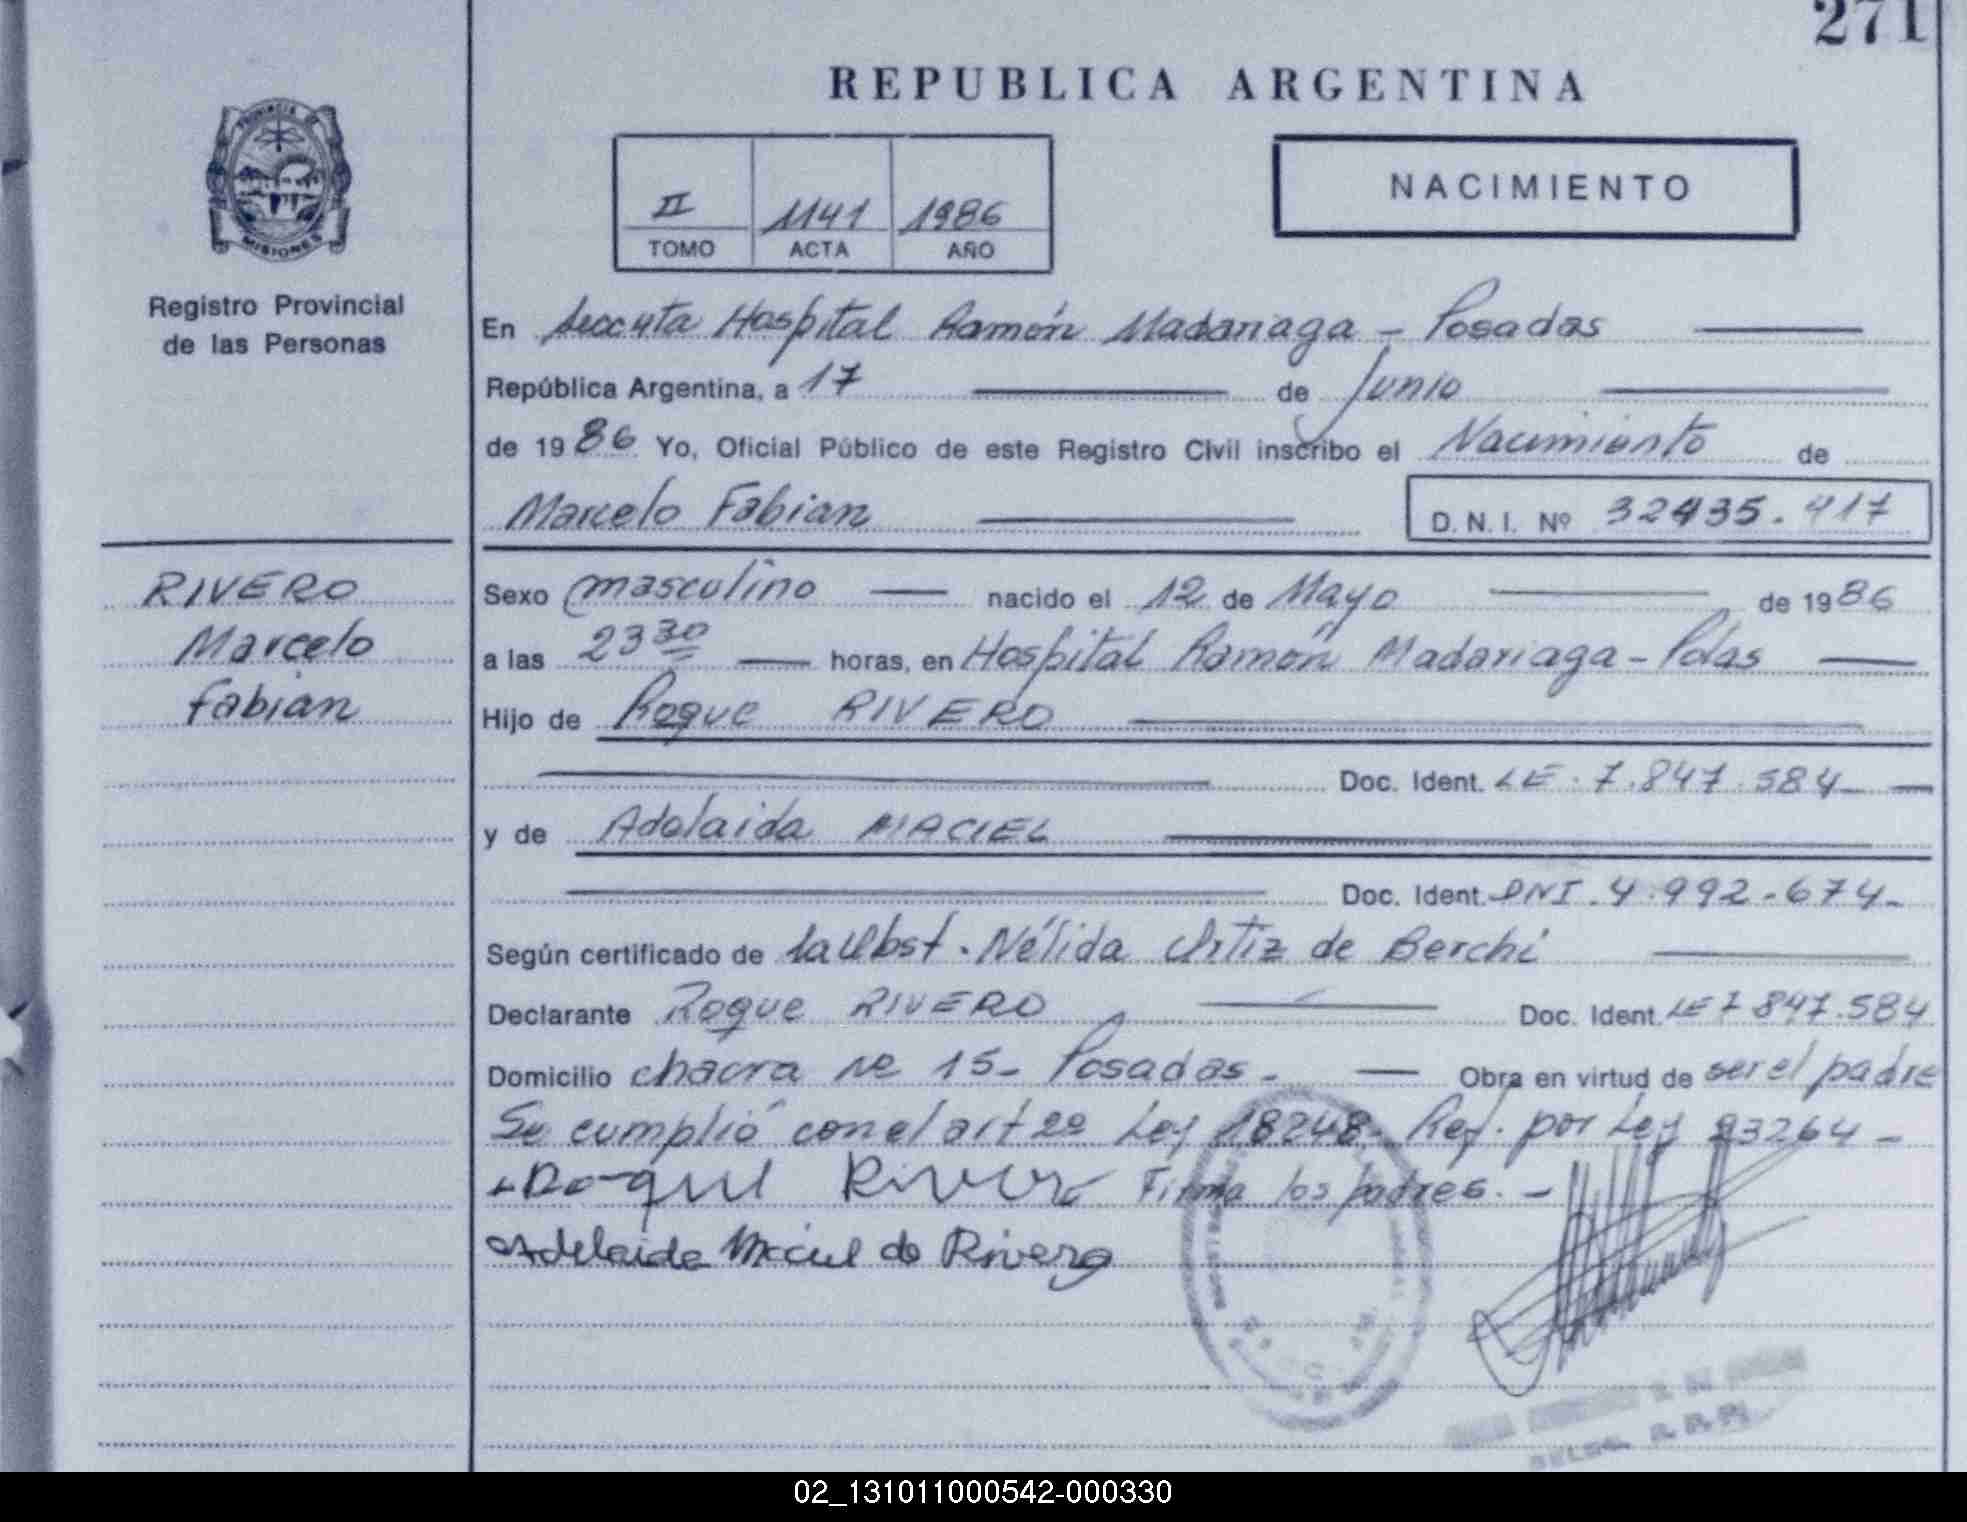 271
REPUBLICA ARGENTINA
PROVINCIA DE
MISIONES
Registro Provincial
de las Personas
II 1141 1986
TOMO ACTA AÑO
NACIMIENTO
En Seccuta Hospital Ramón Madariaga - Posadas
República Argentina, a 17 de Junio
de 1986 Yo, Oficial Público de este Registro Civil inscribo el Nacimiento de
Marcelo Fabian D.N.I. Nº 32435.417
RIVERO
Marcelo
fabian
Sexo masculino nacido el 12 de Mayo de 1986
a las 23 30 horas, en Hospital Ramón Madariaga - Pdas
Hijo de Roque RIVERO
Doc. Ident. LE. 7.847.584
y de Adelaida MACIEL
Doc. Ident. DNI. 4.992.674-
Según certificado de la Obst. Nélida Ortiz de Berchi
Declarante Roque RIVERO Doc. Ident. LE 7 847.584
Domicilio chacra Nº 15- Posadas- Obra en virtud de ser el padre
Se cumplió con el art 2º Ley 18248- Ref. por Ley 23264-
Roque Rivero Firma los padres. -
Adelaida Maciel de Rivero
02_131011000542-000330